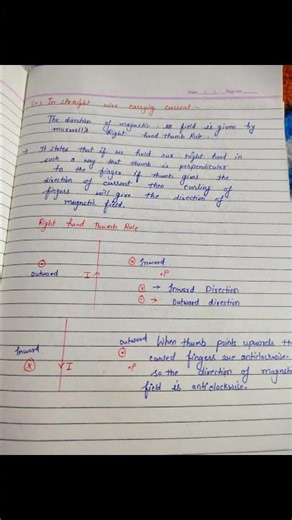 In straight wire carrying current:-
The direction of magnetic field is given by
maxwell's Right hand thumb Rule.
It states that if we hold our right hand in
such a way that thumb is perpendicular
to the finger if thumb gives the
direction of current then curling of
fingers will give the direction of
magnetic field.
Right hand Thumb Rule
⊙ ⊗ Inward
Outward I ↑ •P
⊗ → Inward Direction
⊙ → Outward direction
Inward Outward When thumb points upwards th
⊙ curled fingers are anticlockwise.
⊗ I •P so the direction of magnet
field is anticlockwise.